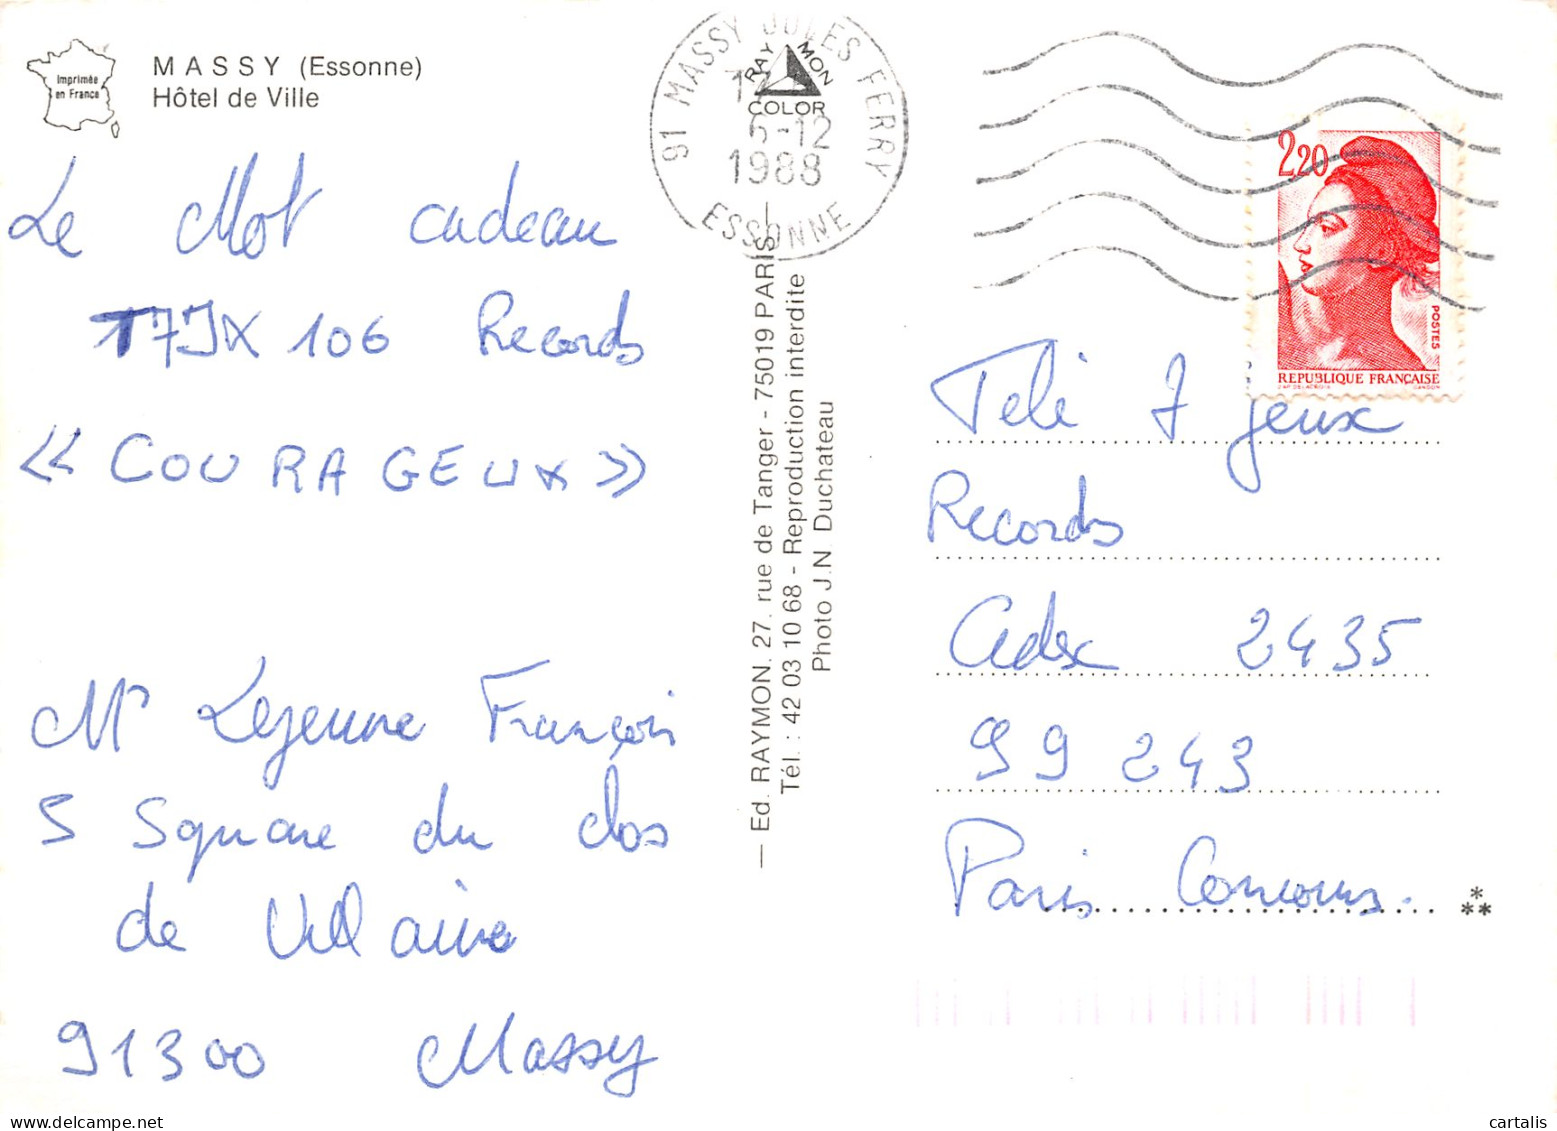 Imprimée
en France
MASSY (Essonne)
Hôtel de Ville
Le Mot cadeau
T7JX 106 Records
« COURAGEUX »
Mr Lejeune François
5 Square du clos
de Villaine
91300 Massy
91 MASSY JULES FERRY
5-12
1988
ESSONNE
RAYMON
COLOR
— Ed. RAYMON. 27, rue de Tanger - 75019 PARIS
Tél. : 42 03 10 68 - Reproduction interdite
Photo J.N Duchateau
2,20
POSTES
REPUBLIQUE FRANÇAISE
Télé 7 jeux
Records
Cedex 2435
99 243
Paris Concours.
cartalis